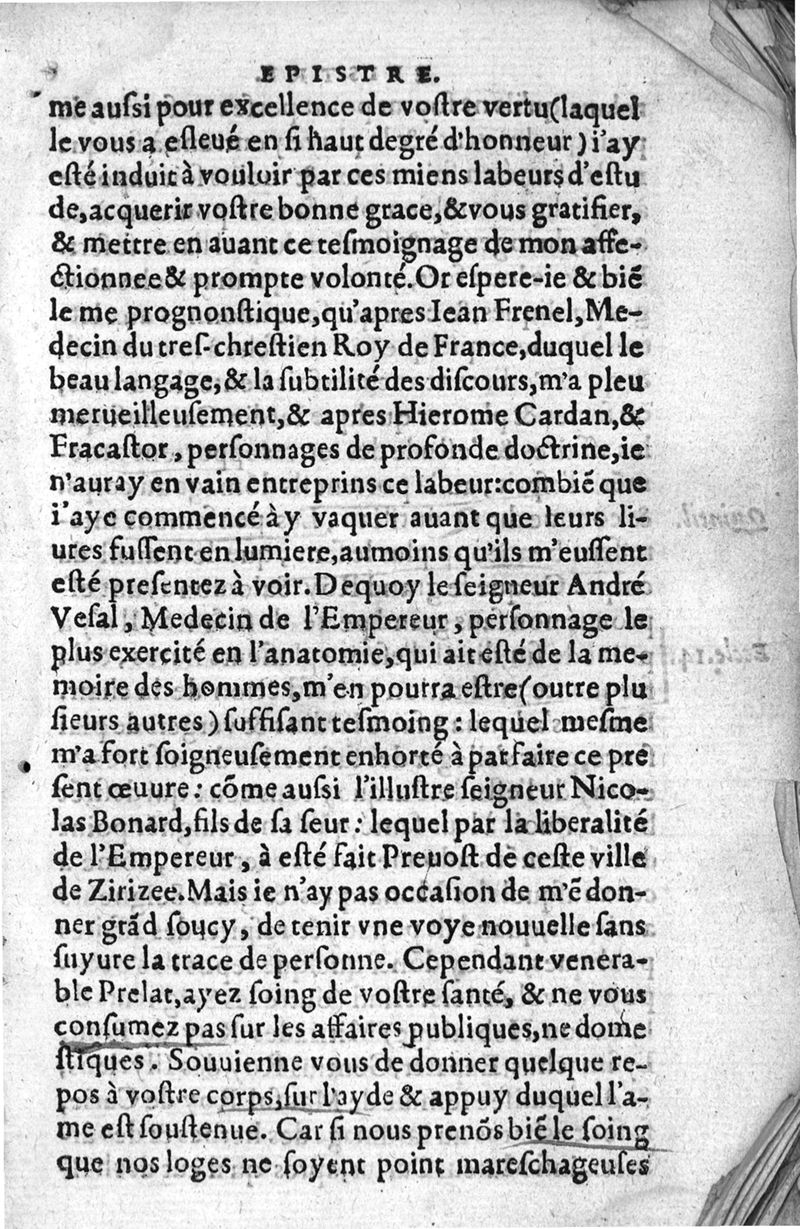 EPISTRE.
me aussi pour excellence de vostre vertu(laquel
le vous a esleué en si haut degré d'honneur) i'ay
esté induit à vouloir par ces miens labeurs d'estu
de, acquerir vostre bonne grace, & vous gratifier,
& mettre en auant ce tesmoignage de mon affe-
ctionnee & prompte volonté. Or espere-ie & biē
le me prognonstique, qu'apres Iean Frenel, Me-
decin du tres-chrestien Roy de France, duquel le
beau langage, & la subtilité des discours, m'a pleu
merueilleusement, & apres Hierome Cardan, &
Fracastor, personnages de profonde doctrine, ie
n'auray en vain entreprins ce labeur: combiē que
i'aye commencé à y vaquer auant que leurs li-
ures fussent en lumiere, aumoins qu'ils m'eussent
esté presentez à voir. Dequoy le seigneur André
Vesal, Medecin de l'Empereur, personnage le
plus exercité en l'anatomie, qui ait esté de la me-
moire des hommes, m'en pourra estre (outre plu
sieurs autres) suffisant tesmoing: lequel mesme
m'a fort soigneusement enhorté à parfaire ce pre
sent œuure: cōme aussi l'illustre seigneur Nico-
las Bonard, fils de sa seur: lequel par la liberalité
de l'Empereur, à esté fait Preuost de ceste ville
de Zirizee. Mais ie n'ay pas occasion de m'ē don-
ner grād soucy, de tenir vne voye nouuelle sans
suyure la trace de personne. Cependant venera-
ble Prelat, ayez soing de vostre santé, & ne vous
consumez pas sur les affaires publiques, ne dome
stiques. Souuienne vous de donner quelque re-
pos à vostre corps, sur l'ayde & appuy duquel l'a-
me est soustenue. Car si nous prenōs biē le soing
que nos loges ne soyent point mareschageuses